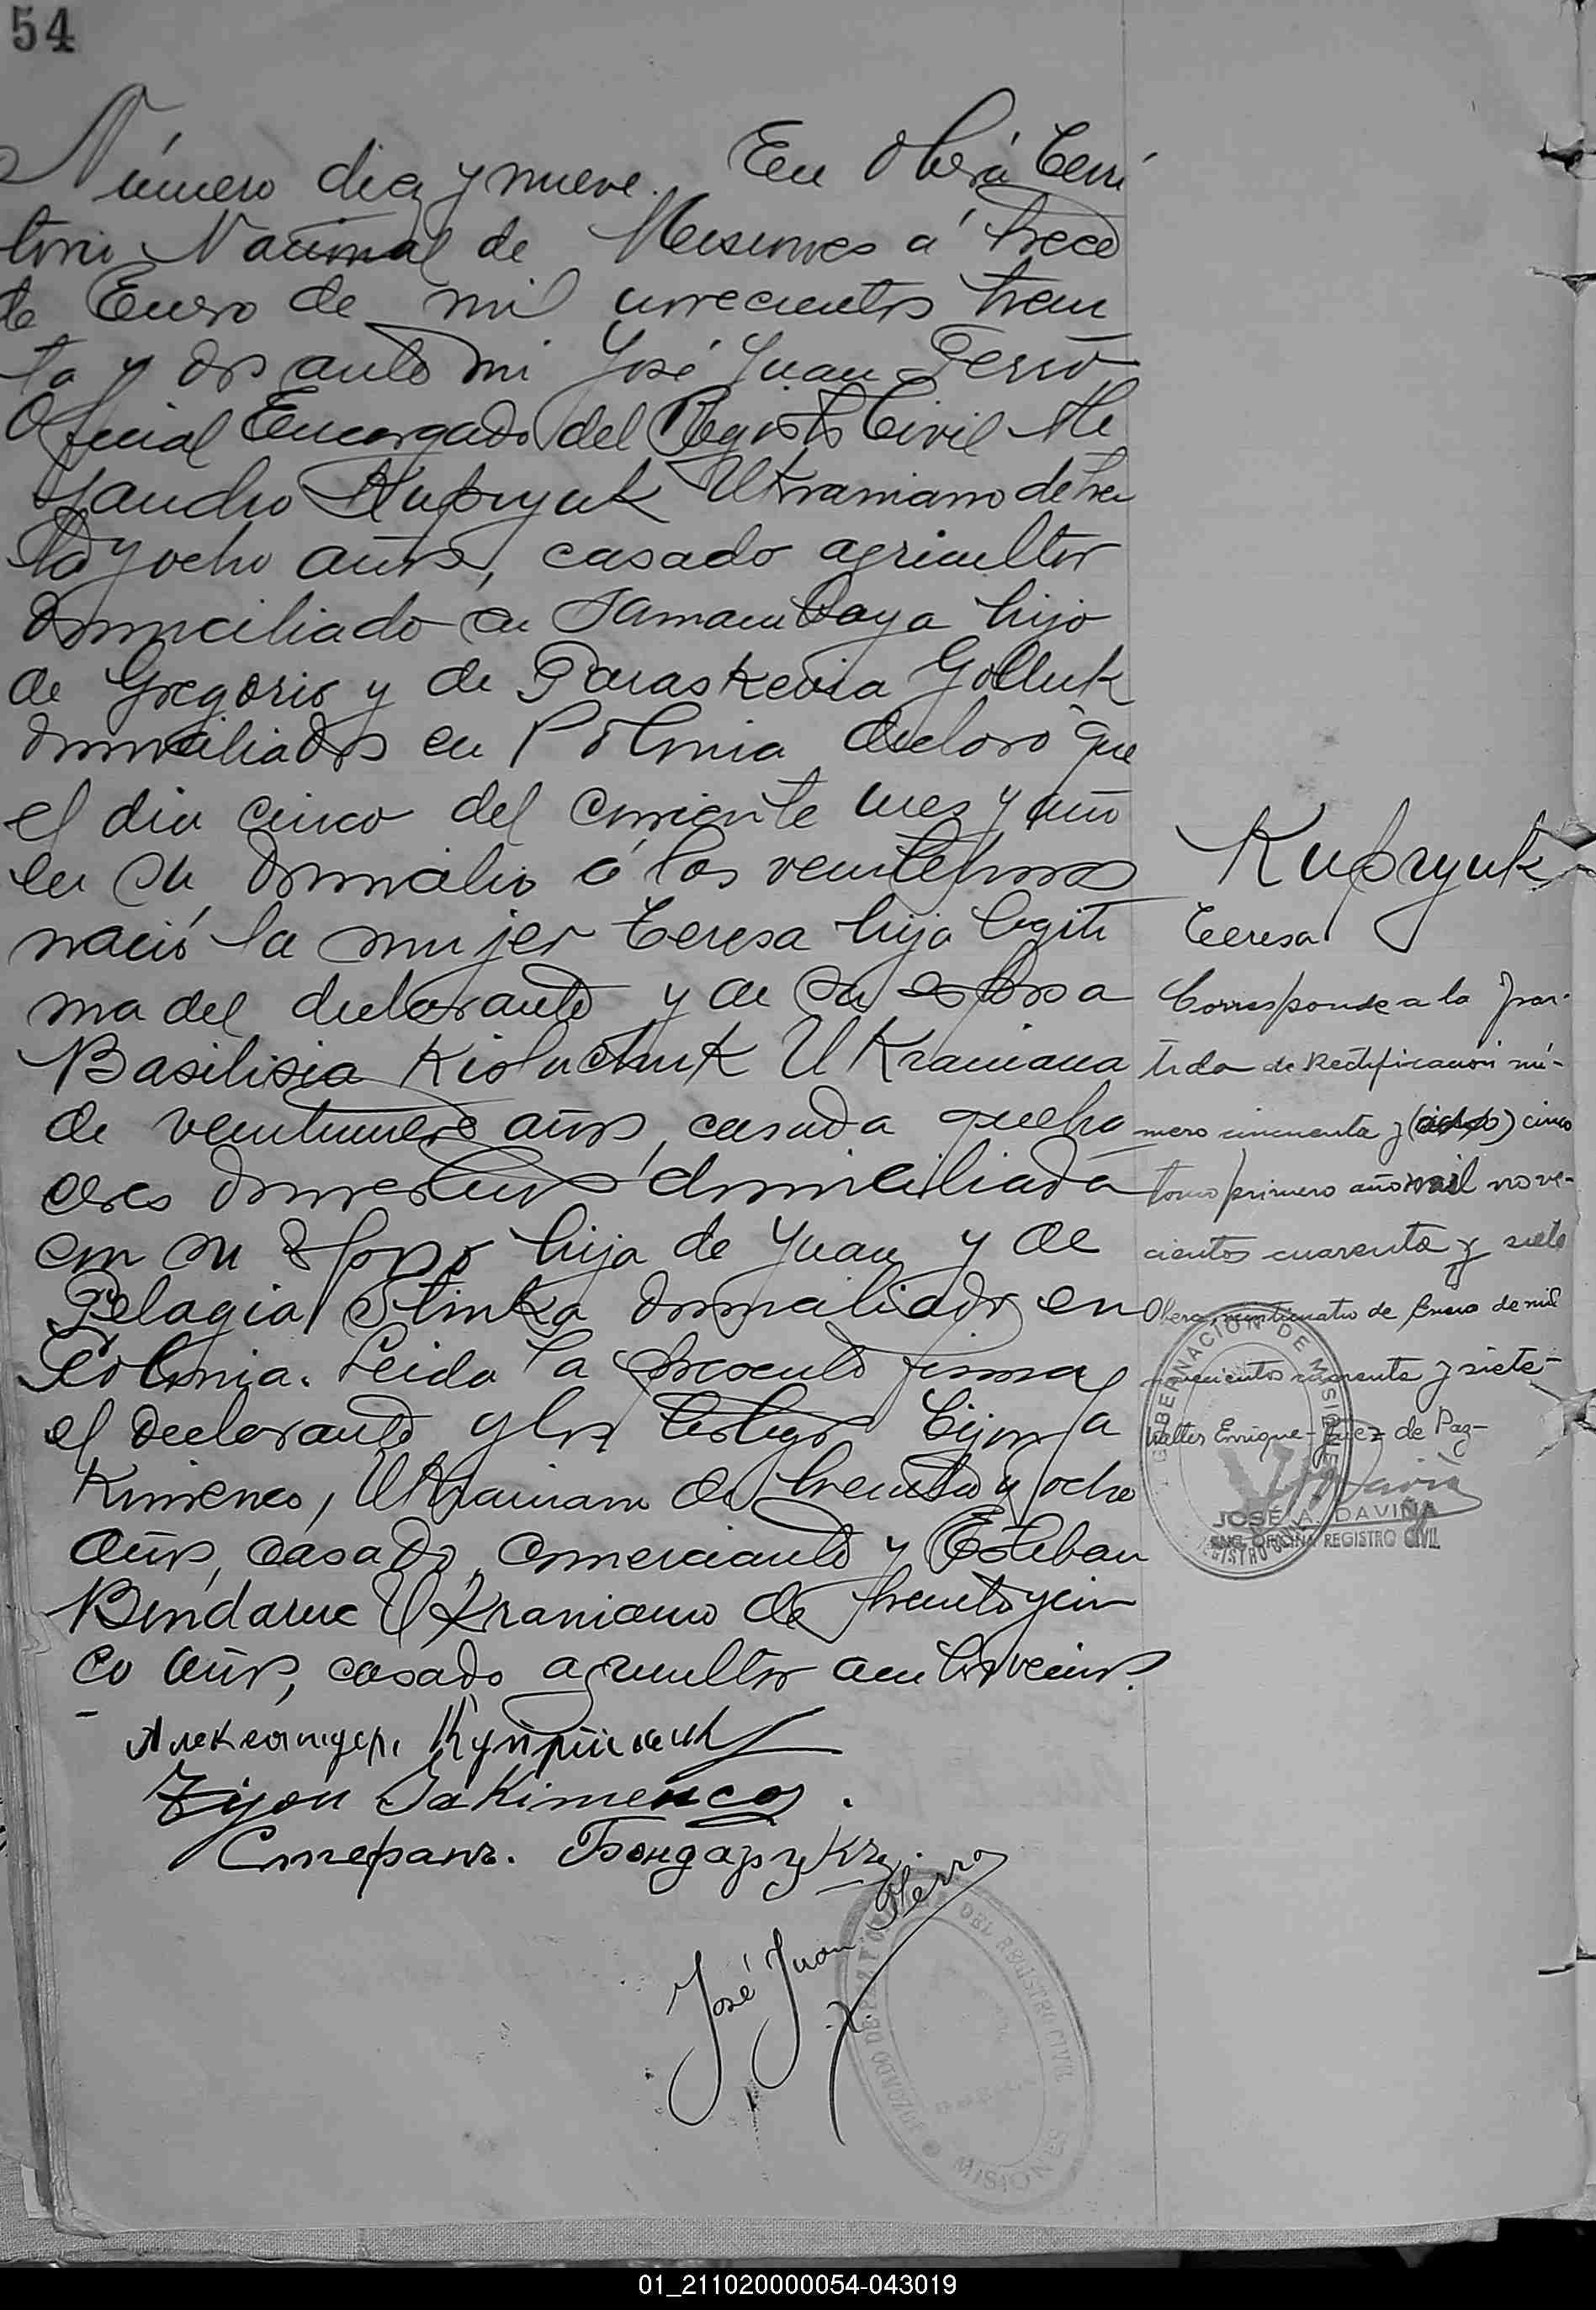 54
Número diez y nueve. En Oberá Terri
torio Nacional de Misiones á trece
de Enero de mil novecientos trein
ta y dos ante mi José Juan Ferro
Oficial Encargado del Registro Civil Ale
jandro Kupryuk Ukraniano de trein
ta y ocho años, casado agricultor
domiciliado en Tamandaya hijo
de Gregorio y de Paraskevia Golluk
domiciliados en Polonia declaro que
el dia cinco del corriente mes y año
en su domicilio á las veinte horas
nació la mujer Teresa hija legiti
ma del declarante y de su esposa
Basilisia Ukraniana
de veintinueve años, casada queha
ceres domesticos domiciliada
con su esposo hija de Juan y de
Pelagia Stinka domiciliados en
Polonia. Leida la presente firma
el declarante y los testigos Tijon
Kimenco, Ukraniano de treinta y ocho
años, casado, comerciante y Esteban
Bondaruc Ukraniano de treinta y cin
co años, casado agricultor ambos vecinos.
Tijon Jakimenco.
Степанъ. Бондарукъ.
José Juan Ferro
Kupryuk
Teresa
Corresponde a la par-
tida de Rectificación nú-
mero cincuenta y () cinco
tomo primero año mil nove-
cientos cuarenta y siete
Oberá, veinticuatro de Enero de mil
novecientos cuarenta y siete-
Walter Enrique-Juez de Paz-
GOBERNACION DE MISIONES
REGISTRO CIVIL
JOSÉ A. DAVIÑA
ENC. OFICINA REGISTRO CIVIL
DEL REGISTRO CIVIL
MISIONES
01_211020000054-043019